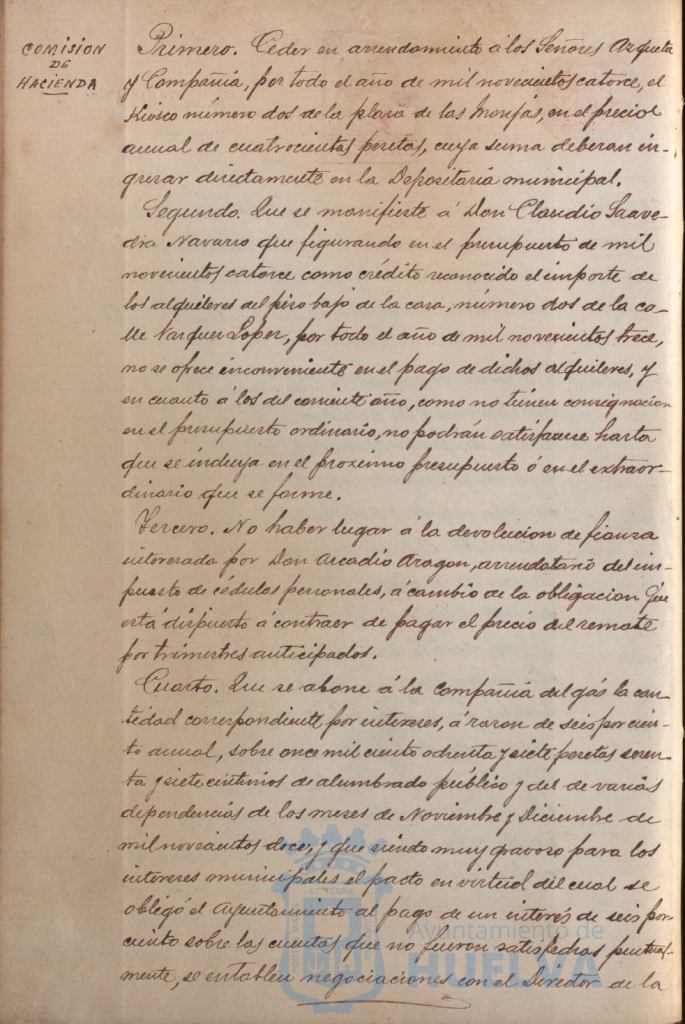 COMISION
DE
HACIENDA
Primero. Ceder en arrendamiento á los Señores Arqueta
y Compañia, por todo el año de mil novecientos catorce, el
Kiosco número dos de la plaza de las Monjas, en el precio
anual de cuatrocientas pesetas, cuya suma deberan in-
gresar directamente en la Depositaria municipal.
Segundo. Que se manifieste á Don Claudio Saave-
dra Navarro que figurando en el presupuesto de mil
novecientos catorce como crédito reconocido el importe de
los alquileres del piso bajo de la casa, número dos de la ca-
lle Vazquez Lopez, por todo el año de mil novecientos trece,
no se ofrece inconveniente en el pago de dichos alquileres, y
en cuanto á los del corriente año, como no tienen consignacion
en el presupuesto ordinario, no podrán satisfacerse hasta
que se incluya en el proximo presupuesto ó en el extraor-
dinario que se forme.
Tercero. No haber lugar á la devolucion de fianza
interesada por Don Arcadio Aragon, arrendatario del im-
puesto de cédulas personales, á cambio de la obligacion que
está dispuesto á contraer de pagar el precio del remate
por trimestres anticipados.
Cuarto. Que se abone á la Compañia del gás la can-
tidad correspondiente por intereses, á razon de seis por cien-
to anual, sobre once mil ciento ochenta y siete pesetas
y siete centimos de alumbrado público y del de varias
dependencias de los meses de Noviembre y Diciembre de
mil novecientos doce, y que siendo muy gravoso para los
intereses municipales el pacto en virtud del cual se
obligó el Ayuntamiento al pago de un interés de seis por
ciento sobre las cuentas que no fueron satisfechas puntual-
mente, se entablen negociaciones con el Director de la
Ayuntamiento de
HUELVA